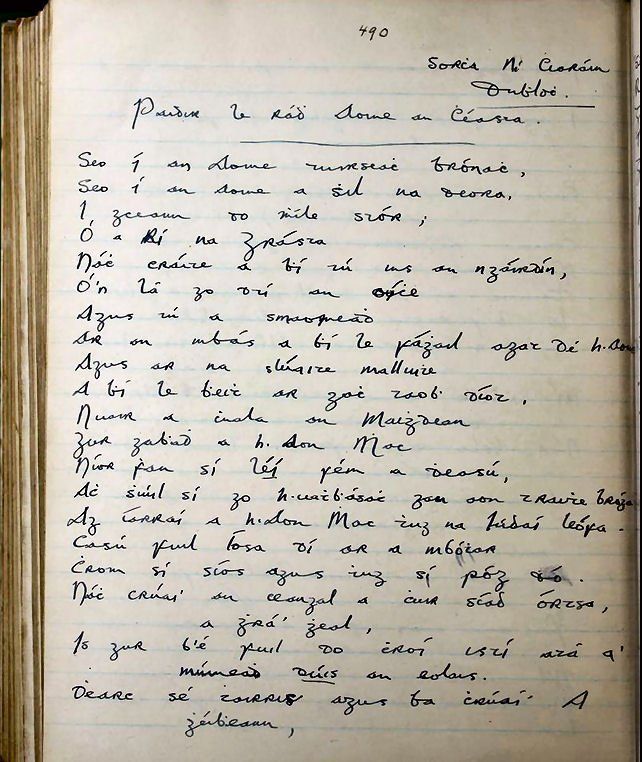 490
Sorċa Ní Ciaráin
Dubloċ.
Paidir le ráḋ Aoine an Ċéasta.
Seo í an Aoine tuirseaċ brónaċ,
Seo í an aoine a ṡil na deora,
I gceann do ṁíle stór;
Ó a Rí na Grásta
Náċ cráite a bí tú ins an ngáirdín,
Ó'n lá go dtí an oiḋċe
Agus tú a smaoineaḋ
Ar an mbás a bí le fáġail agat Dé h-Aoine
Agus ar na slúaite malluiṫe
A bí le beiṫ ar gaċ taob díot.
Nuair a ċuala an Maiġdean
gur gabaḋ a h-Aon Mac
Níor ḟan sí léi féin a ḋeasú,
Aċ ṡiúil sí go h-uaṫbásaċ gan aon
Ag iarraí a h-Aon Mac ṫug na Iúdaí leófa.
Casú fuil Íosa dí ar a mbóṫar
Ċrom sí síos agus ṫug sí póg dó.
Náċ crúaí an ceangal a ċuir síad órtsa,
a ġrá ġeal,
Is gur b'é fuil do ċroí istí atá a'
múineaḋ dúis an eolais.
Ḋearc sé tairis agus ba ċrúaí A
ġéibeann,